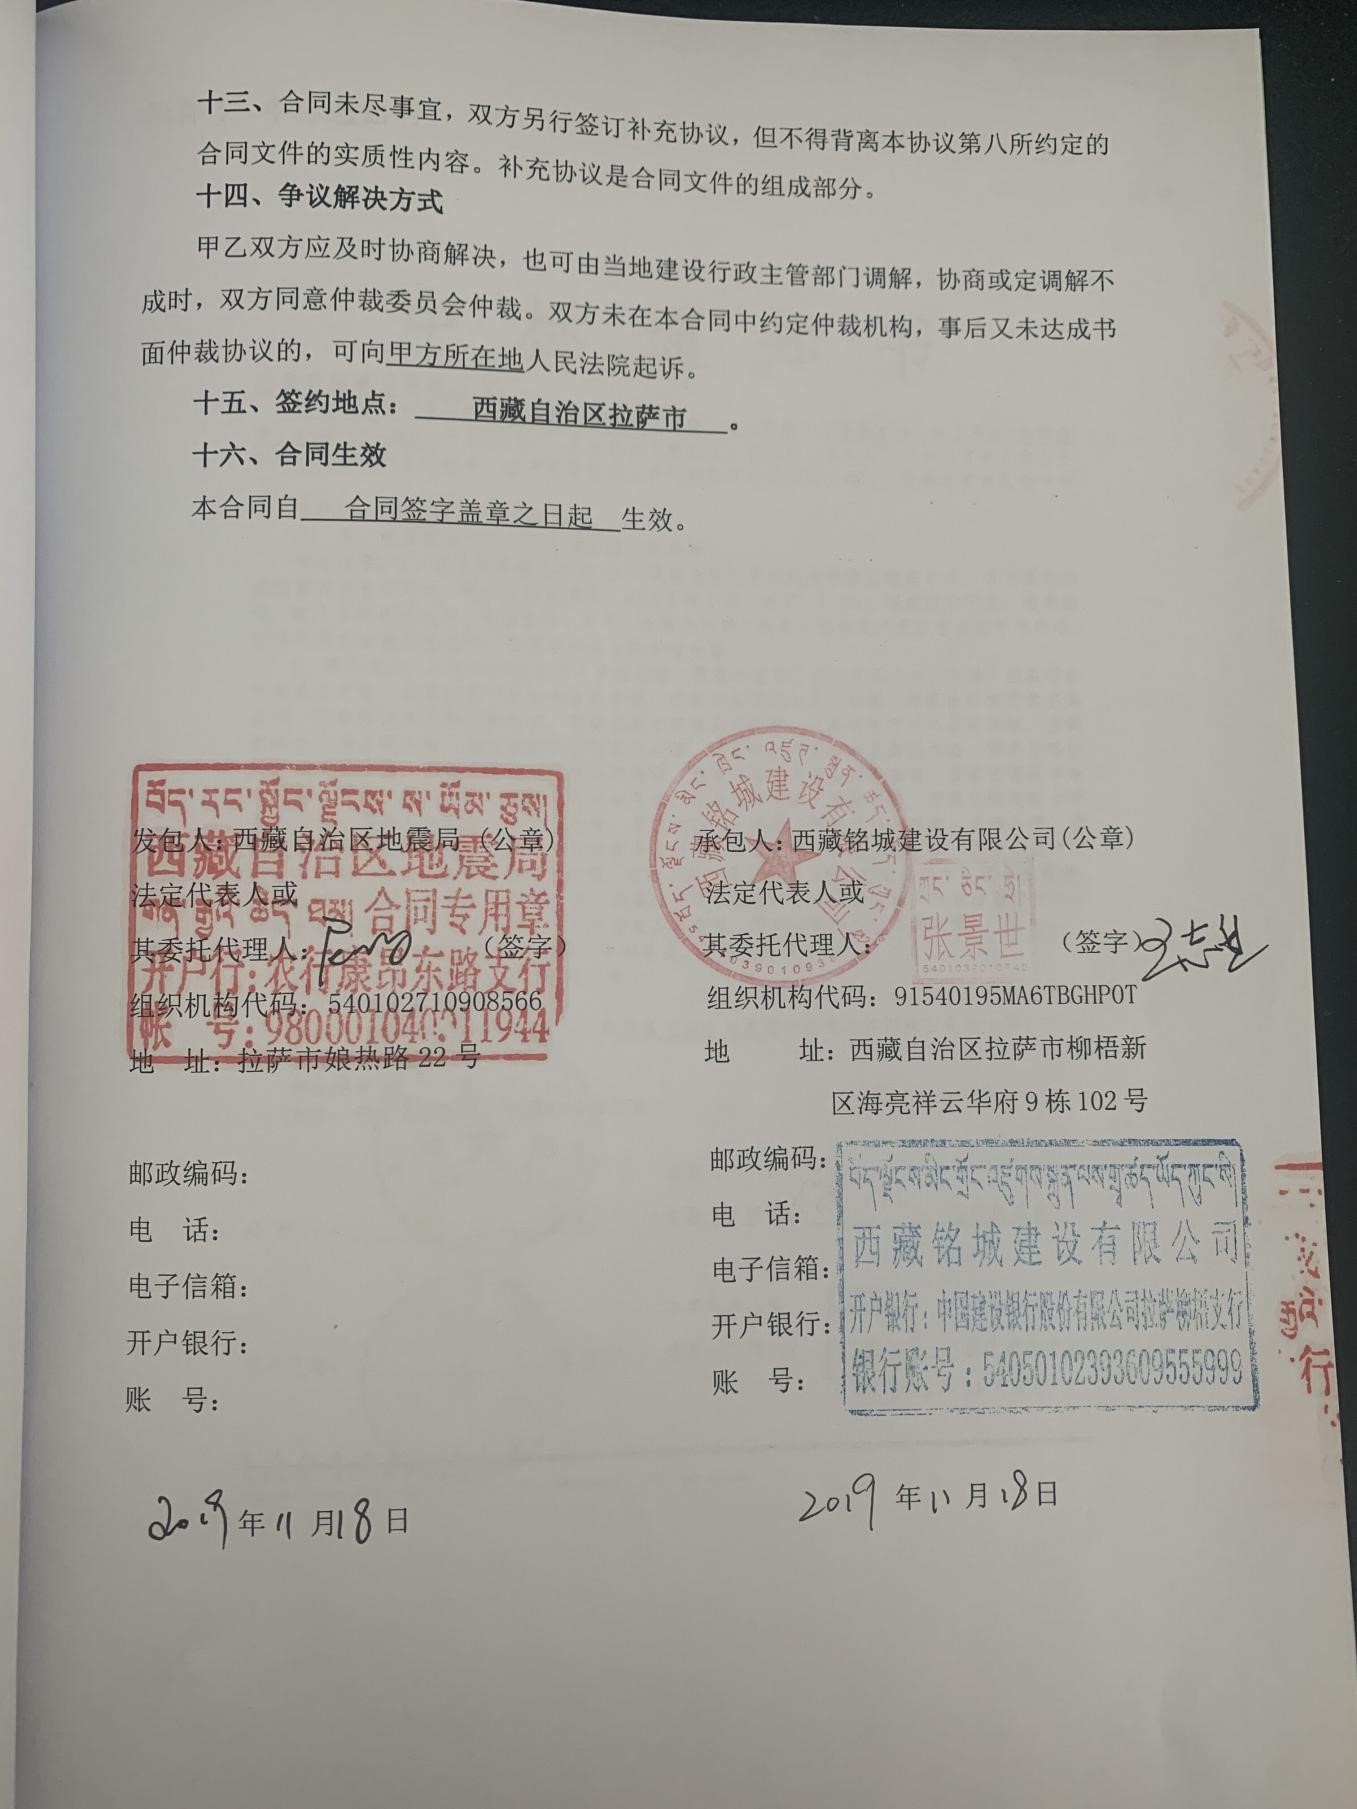 十三、合同未尽事宜，双方另行签订补充协议，但不得背离本协议第八所约定的
合同文件的实质性内容。补充协议是合同文件的组成部分。
十四、争议解决方式
甲乙双方应及时协商解决，也可由当地建设行政主管部门调解，协商或定调解不
成时，双方同意仲裁委员会仲裁。双方未在本合同中约定仲裁机构，事后又未达成书
面仲裁协议的，可向甲方所在地人民法院起诉。
十五、签约地点：西藏自治区拉萨市。
十六、合同生效
本合同自合同签字盖章之日起生效。
发包人：西藏自治区地震局（公章）
西藏自治区地震局
法定代表人或
合同专用章
其委托代理人：（签字）
开户行：农行康昂东路支行
组织机构代码：540102710908566
帐 号：
地 址：拉萨市娘热路 22 号
邮政编码：
电 话：
电子信箱：
开户银行：
账 号：
2019年11月18日
承包人：西藏铭城建设有限公司(公章)
西藏铭城建设有限公司
法定代表人或
其委托代理人：（签字）
张景世
组织机构代码：91540195MA6TBGHP0T
地 址：西藏自治区拉萨市柳梧新
区海亮祥云华府 9 栋 102 号
邮政编码：
电 话：
电子信箱：
开户银行：
账 号：
西藏铭城建设有限公司
开户银行：中国建设银行股份有限公司拉萨柳梧支行
银行账号：54050102393609555999
2019年11月18日